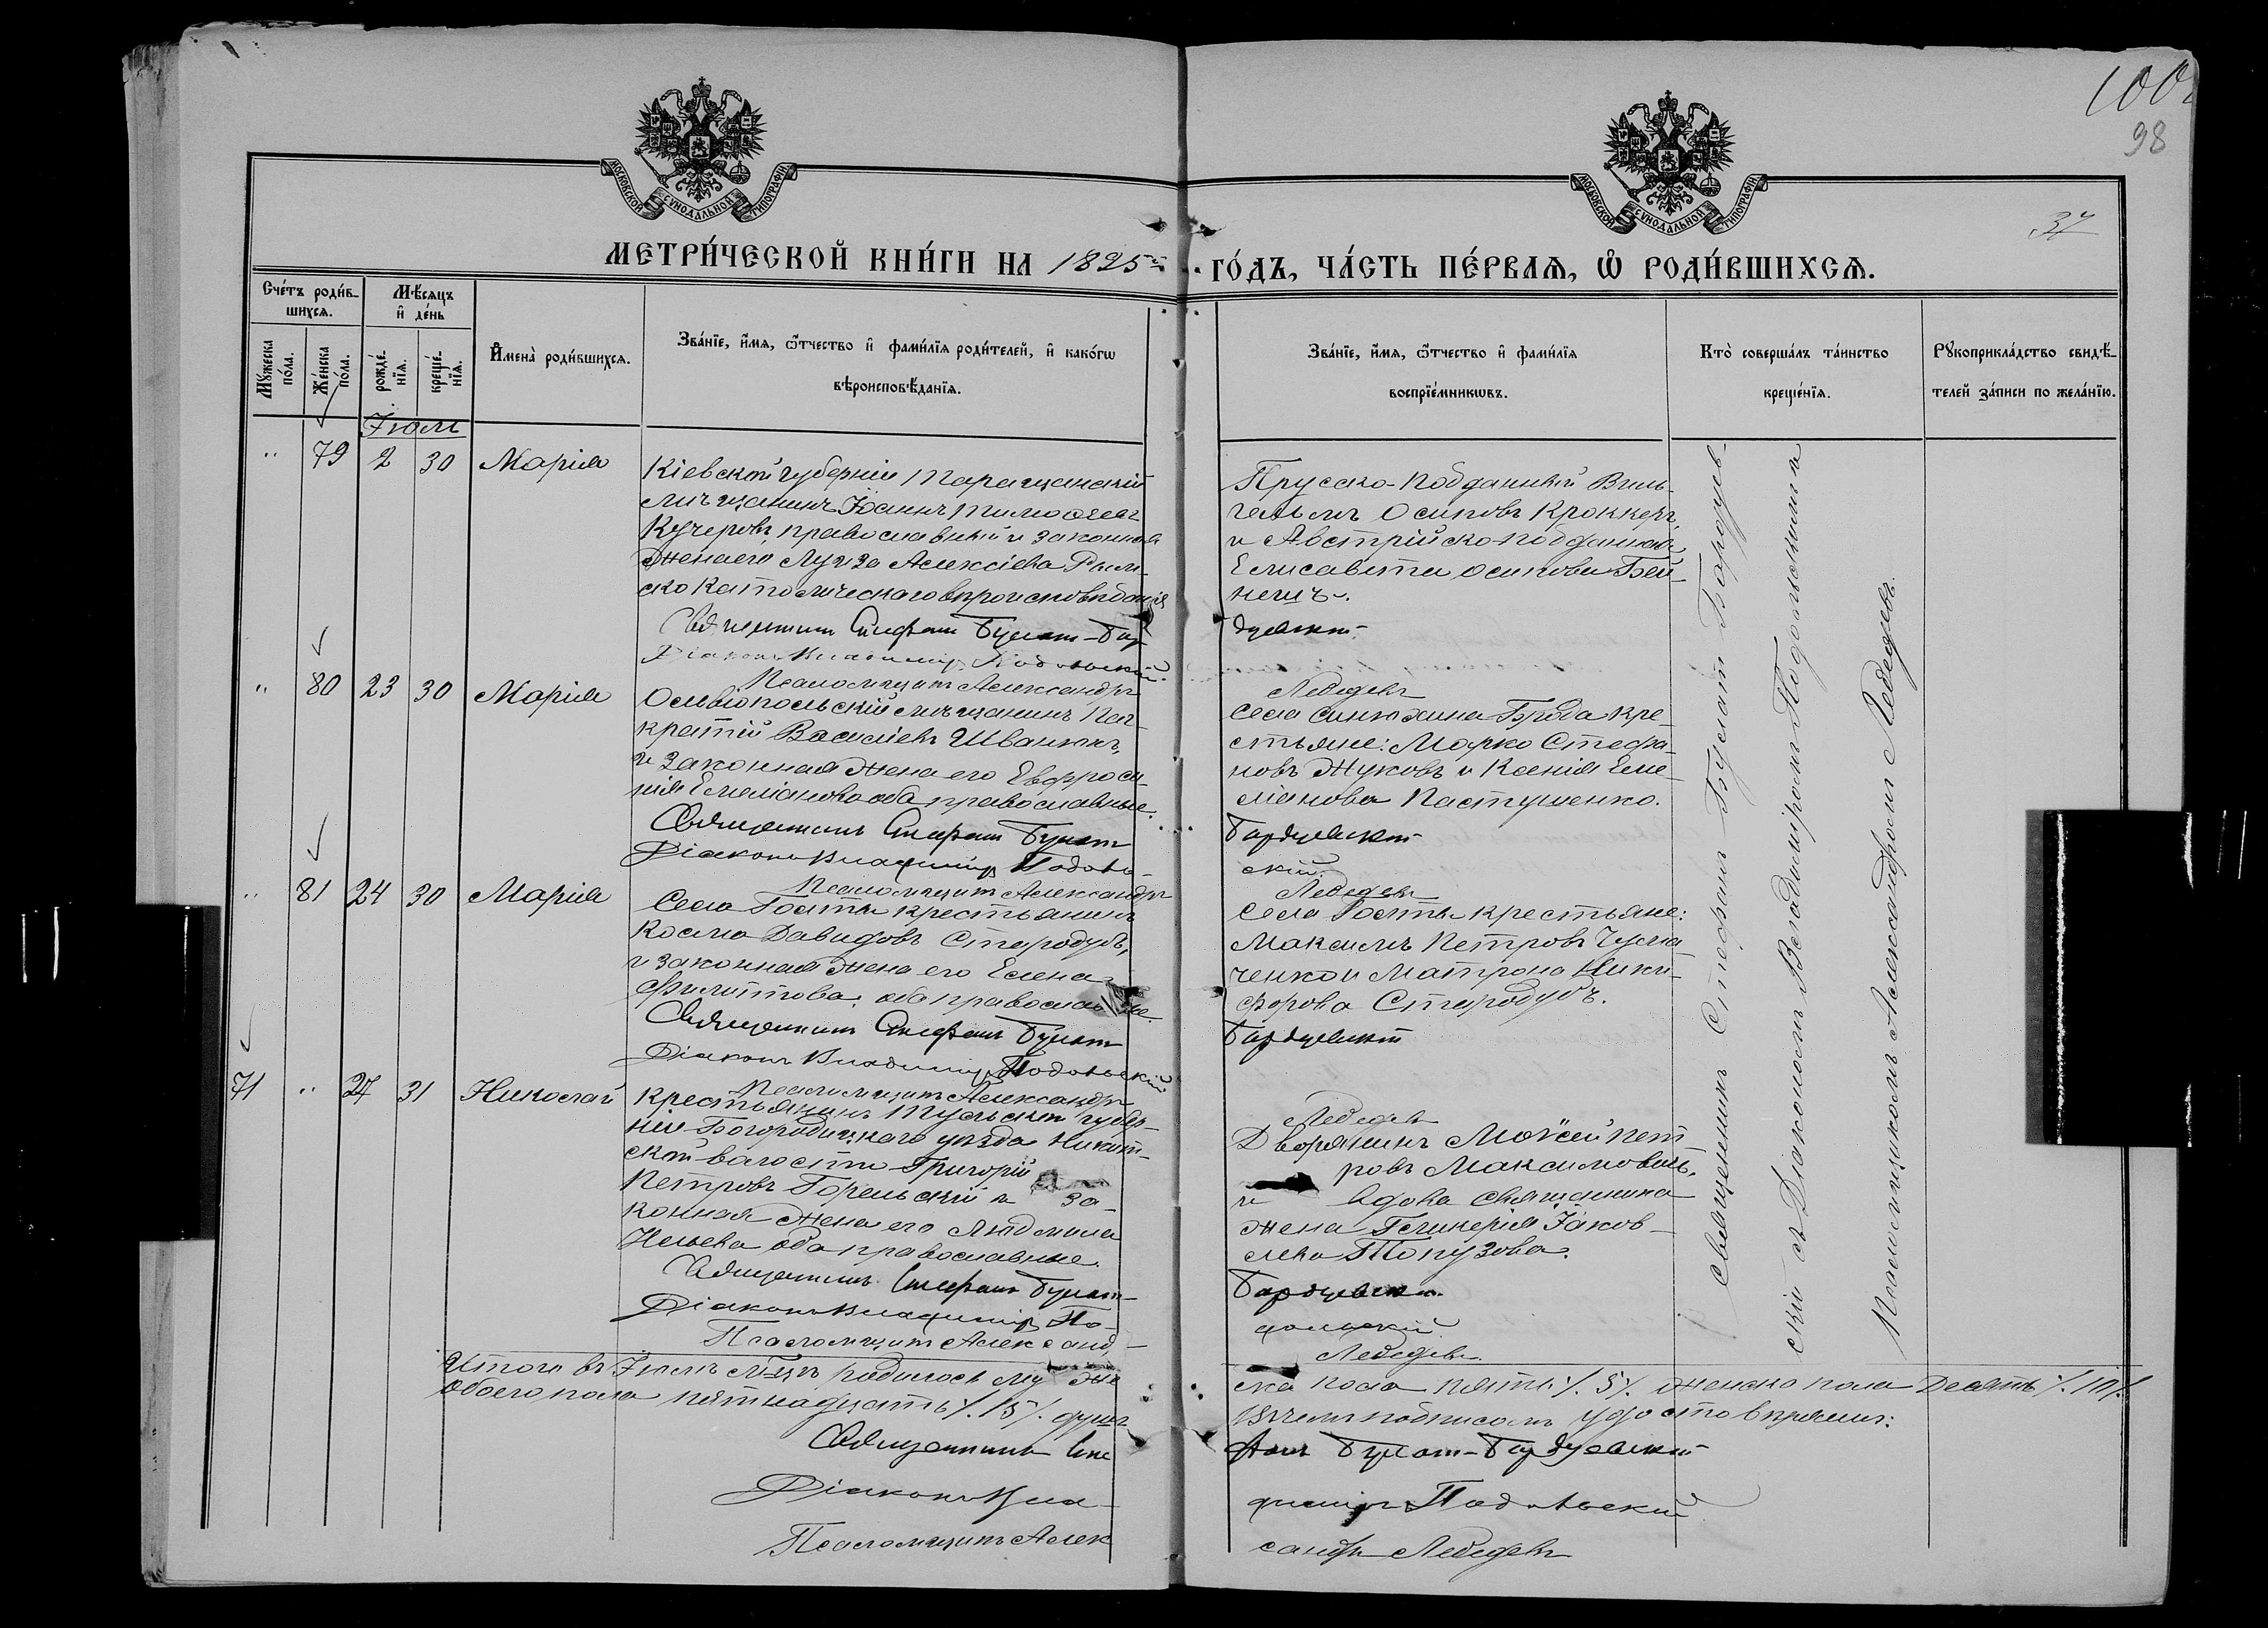 100
98
37
МОСКОВСКОЙ СУНОДАЛЬНОЙ ТИПОГРАФІИ
МОСКОВСКОЙ СУНОДАЛЬНОЙ ТИПОГРАФІИ
МЕТРИ́ЧЕСКОЙ КНИ́ГИ НА 1895й ГО́ДЪ, ЧА́СТЬ ПЕ́РВАѦ, Ѽ РОДИ́ВШИХСѦ.
Сче́тъ роди́в-
шихсѧ.
Мѣ́сѧцъ
и҆ де́нь
Мꙋ́жеска
по́ла.
Же́нска
по́ла.
рожде́-
нїѧ.
креще́-
нїѧ.
И҆мена̀ роди́вшихсѧ.
Зва́нїе, и҆́мѧ, ѻ҆́тчество и҆ фами́лїѧ роди́телей, и҆ како́гѡ
вѣроисповѣ́данїѧ.
Зва́нїе, и҆́мѧ, ѻ҆́тчество и҆ фами́лїѧ
воспрїе́мникѡвъ.
Кто̀ соверша́лъ та́инство
креще́нїѧ.
Рꙋкоприкла́дство свидѣ́-
телей за́писи по жела́нїю.
Іюль
" 79 2 30 Марія
Кіевской губерніи Таращанскій
мѣщанинъ Іоаннъ Тимоѳеевъ
Кучеровъ, православный и законная
жена его Луиза Алексіева Рим-
ско Католическаго вѣроисповѣданія
Священникъ Стефанъ Булат-Бар
Діаконъ Владиміръ Подольскій
Псаломщикъ Александръ
Прусско-подданный Виль-
гельмъ Осиповъ Кроккеръ,
и Австрійско-подданная
Елисавета Осипова Бей-
нешъ.
дуевскій
Лебедевъ
" 80 23 30 Марія
Ольвіопольскій мѣщанинъ Пан-
кратій Василіевъ Иванюкъ,
и законная жена его Евфроси-
нія Емеліанова оба православные.
Священникъ Стефанъ Булат
Діаконъ Владиміръ Подоль-
Псаломщикъ Александръ
Села Синюхина Брода кре-
стьяне: Марко Стефа-
новъ Жуковъ и Ксенія Еме-
ліанова Пастушенко.
Бардуевскій
скій.
Лебедевъ
" 81 24 30 Марія
Села Голты крестьянинъ
Косма Давидовъ Стародубъ,
и законная жена его Елена
Филиппова, оба православные.
Священникъ Стефанъ Булат
Діаконъ Владиміръ Подольскій
Псаломщикъ Александръ
Села Голты крестьяне:
Максимъ Петровъ Чума
ченко и Матрона Ники-
форова Стародубъ.
Бардуевскій
Лебедевъ
71 " 27 31 Николай
Крестьянинъ Тульской губер-
ніи Богородицкаго уѣзда Никит-
ской волости Григорій
Петровъ Горельскій и за-
конная жена его Людмила
Ильева оба православные.
Священникъ Стефанъ Булат-
Діаконъ Владиміръ По-
Псаломщикъ Александ-
Дворянинъ Моѵсей Пет
ровъ Максимовичъ,
и вдова священника
жена Гликерія Іаков-
лева Топузова.
Бардуевскій.
дольскій
Лебедевъ.
Священникъ Стефанъ Булат Бардуев-
скій съ Діакономъ Владиміромъ Подольскимъ и
Псаломщикомъ Александромъ Лебедевъ.
Итого въ Іюлѣ м-цѣ родилось му же ска пола пять /. 5 /. женска пола десять /. 10 /.
Обоего пола пятнадцать /. 15 /. душъ
въ чемъ подписомъ удостовѣряемъ:
Священникъ Сте фанъ Булат-Бардуевскій
Діаконъ Вла- диміръ Подольскій
Псаломщикъ Алек сандръ Лебедевъ